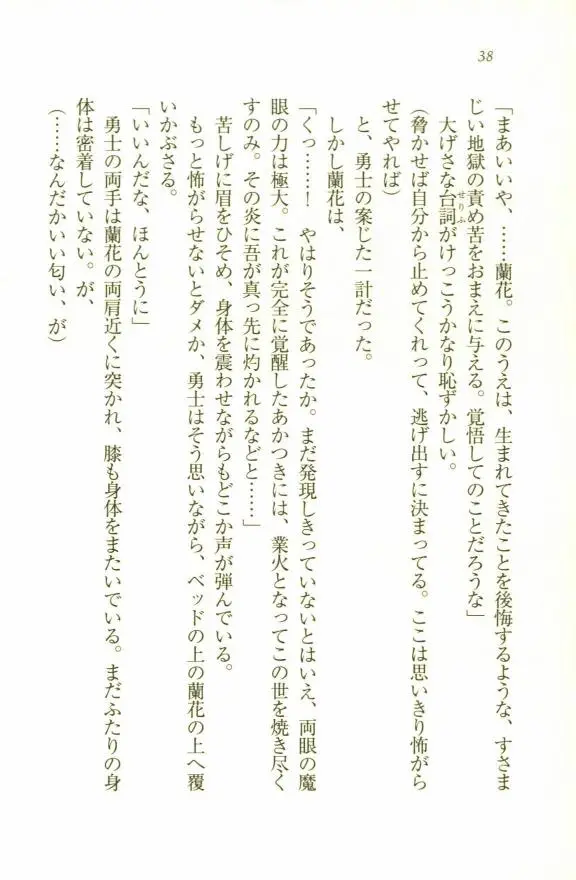 38
「まあいいや、……蘭花。このうえは、生まれてきたことを後悔するような、すさま
じい地獄の責め苦をおまえに与える。覚悟してのことだろうな」
大げさな台詞がけっこうかなり恥ずかしい。
せりふ
（脅かせば自分から止めてくれって、逃げ出すに決まってる。ここは思いきり怖がら
せてやれば）
と、勇士の案じた一計だった。
しかし蘭花は、
「くっ……！　やはりそうであったか。まだ発現しきっていないとはいえ、両眼の魔
眼の力は極大。これが完全に覚醒したあかつきには、業火となってこの世を焼き尽く
すのみ。その炎に吾が真っ先に灼かれるなどと……」
苦しげに眉をひそめ、身体を震わせながらもどこか声が弾んでいる。
もっと怖がらせないとダメか、勇士はそう思いながら、ベッドの上の蘭花の上へ覆
いかぶさる。
「いいんだな、ほんとうに」
勇士の両手は蘭花の両肩近くに突かれ、膝も身体をまたいでいる。まだふたりの身
体は密着していない。が、
（……なんだかいい匂い、が）